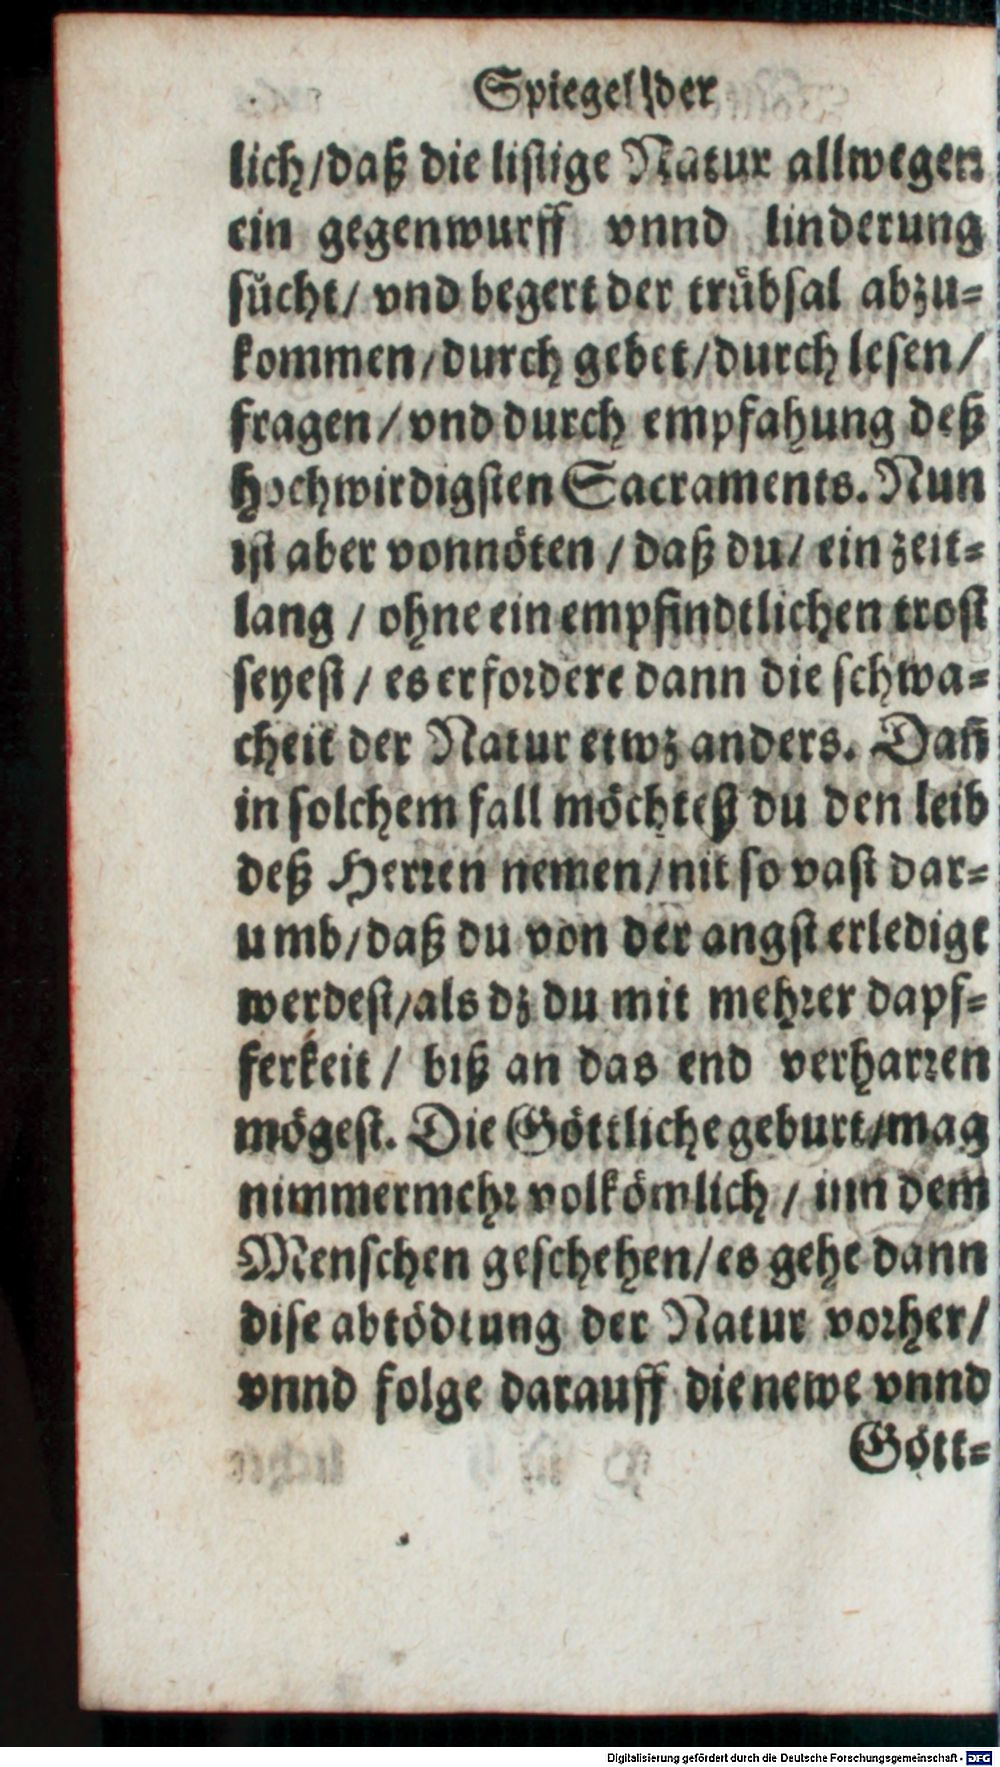 Spiegel der
lich/daß die listige Natur allwegen
ein gegenwurff vnnd linderung
sůcht/ vnd begert der trübsal abzu=
kommen/durch gebet/durch lesen/
fragen/vnd durch empfahung deß
hochwirdigsten Sacraments. Nun
ist aber vonnöten/daß du/ ein zeit=
lang/ ohne ein empfindtlichen trost
seyest/ es erfordere dann die schwa=
cheit der Natur etwz anders. Dañ
in solchem fall möchtest du den leib
deß Herren nemen/nit so vast dar=
umb/daß du von der angst erledigt
werdest/als dz du mit mehrer dapf=
ferkeit/ biß an das end verharren
mögest. Die Göttliche geburt/mag
nimmermehr volkömlich/ inn dem
Menschen geschehen/es gehe dann
dise abtödtung der Natur vorher/
vnnd folge darauff die newe vnnd
Gött=
Digitalisierung gefördert durch die Deutsche Forschungsgemeinschaft - DFG